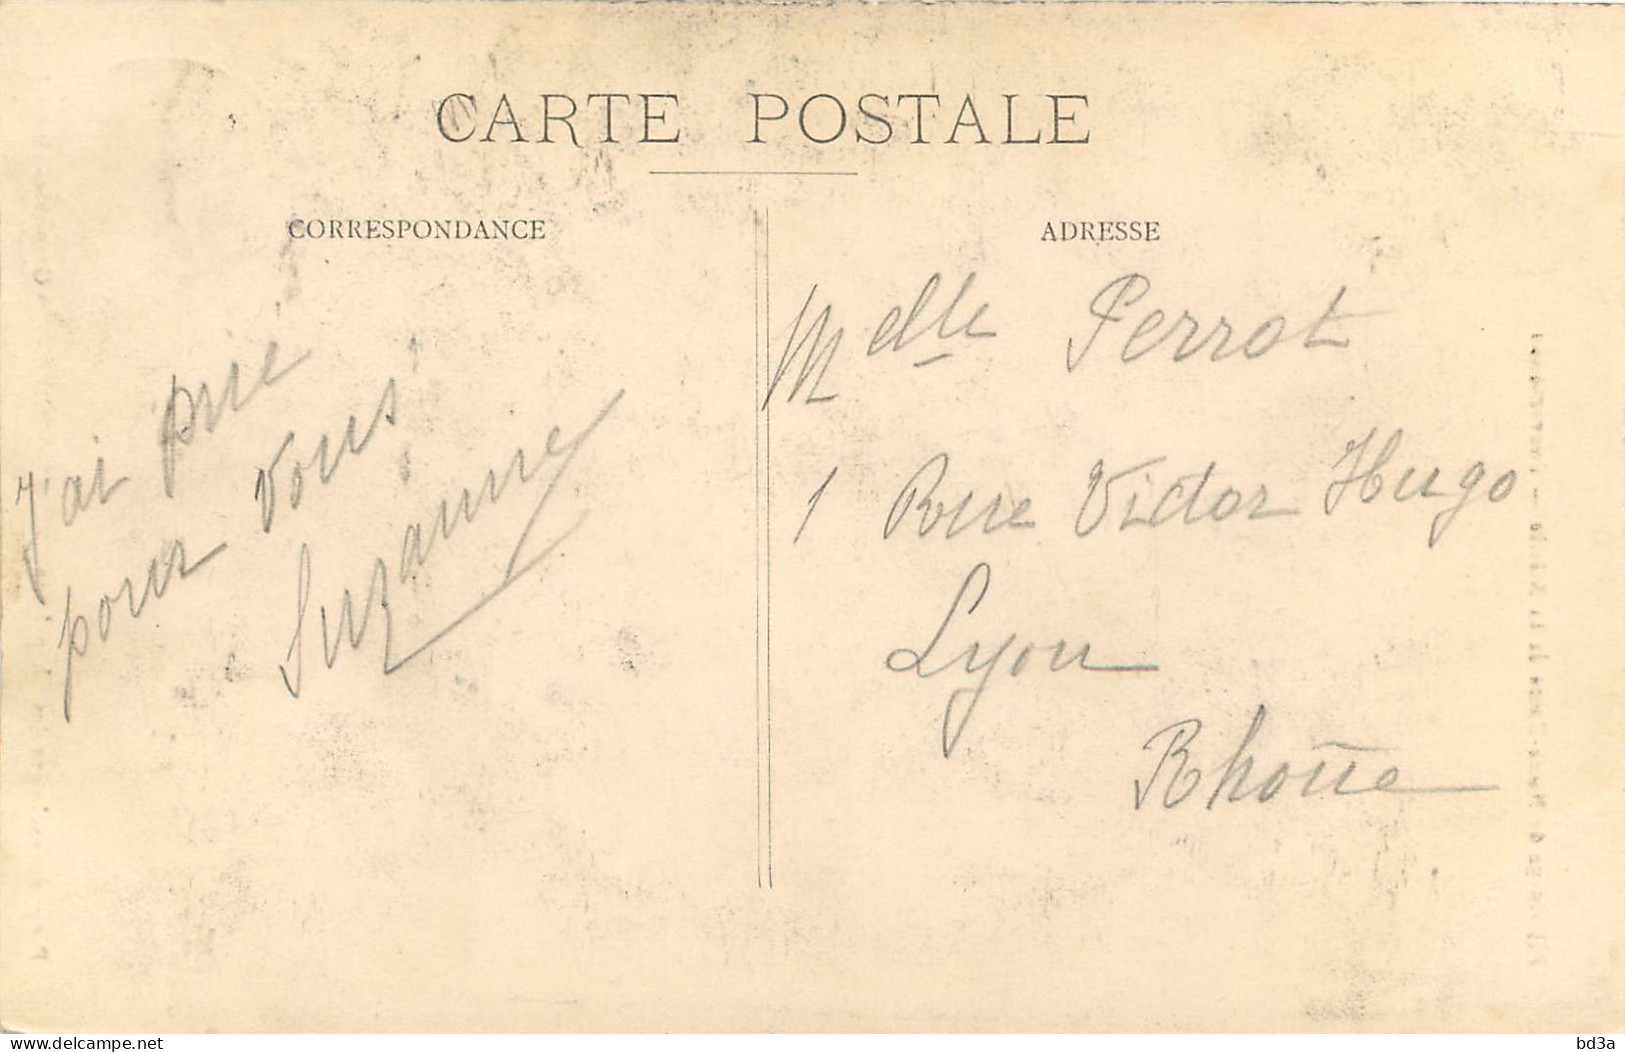 CARTE POSTALE
CORRESPONDANCE
J'ai prié
pour vous
Suzanne
ADRESSE
Melle Perrot
1 Rue Victor Hugo
Lyon
Rhône
www.delcampe.net
bd3a